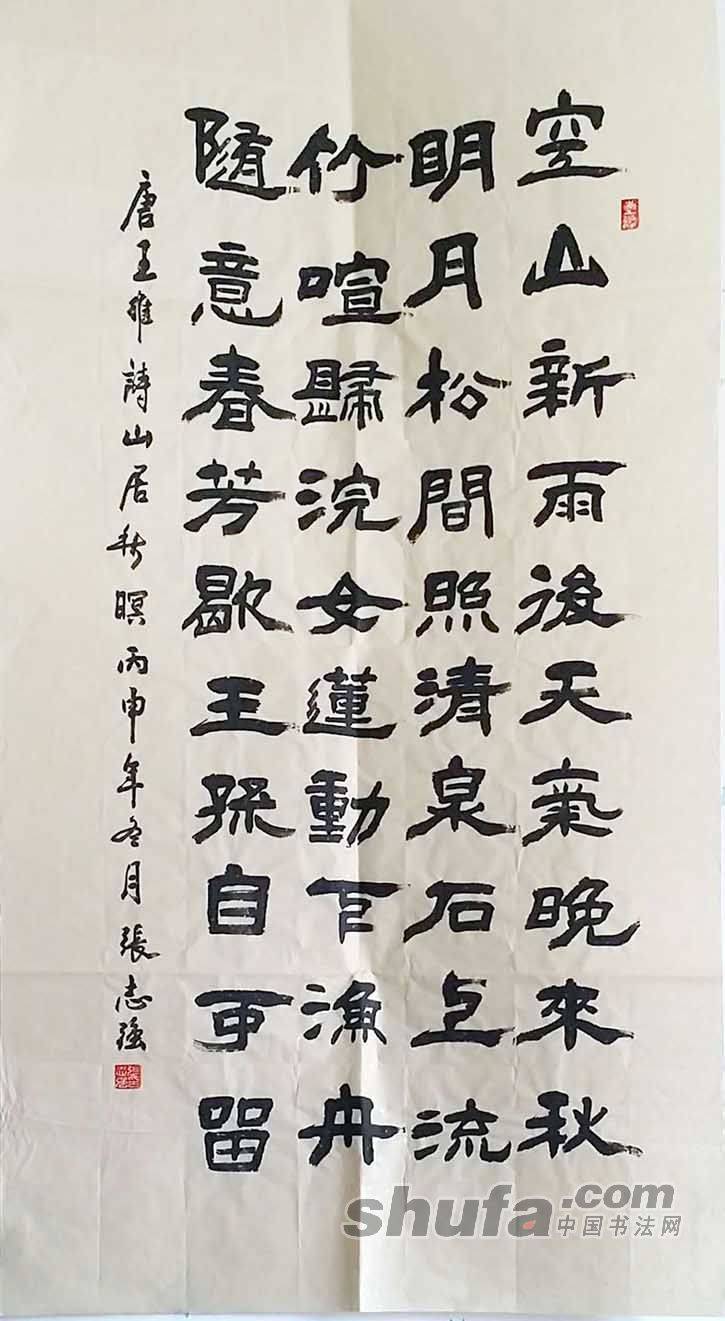 空山新雨後天氣晚來秋
眀月松間照清泉石上流
竹喧歸浣女蓮動下漁舟
隨意春芳歇王孫自可留
唐王維詩山居秋暝丙申年冬月張志强
shufa.com
中国书法网